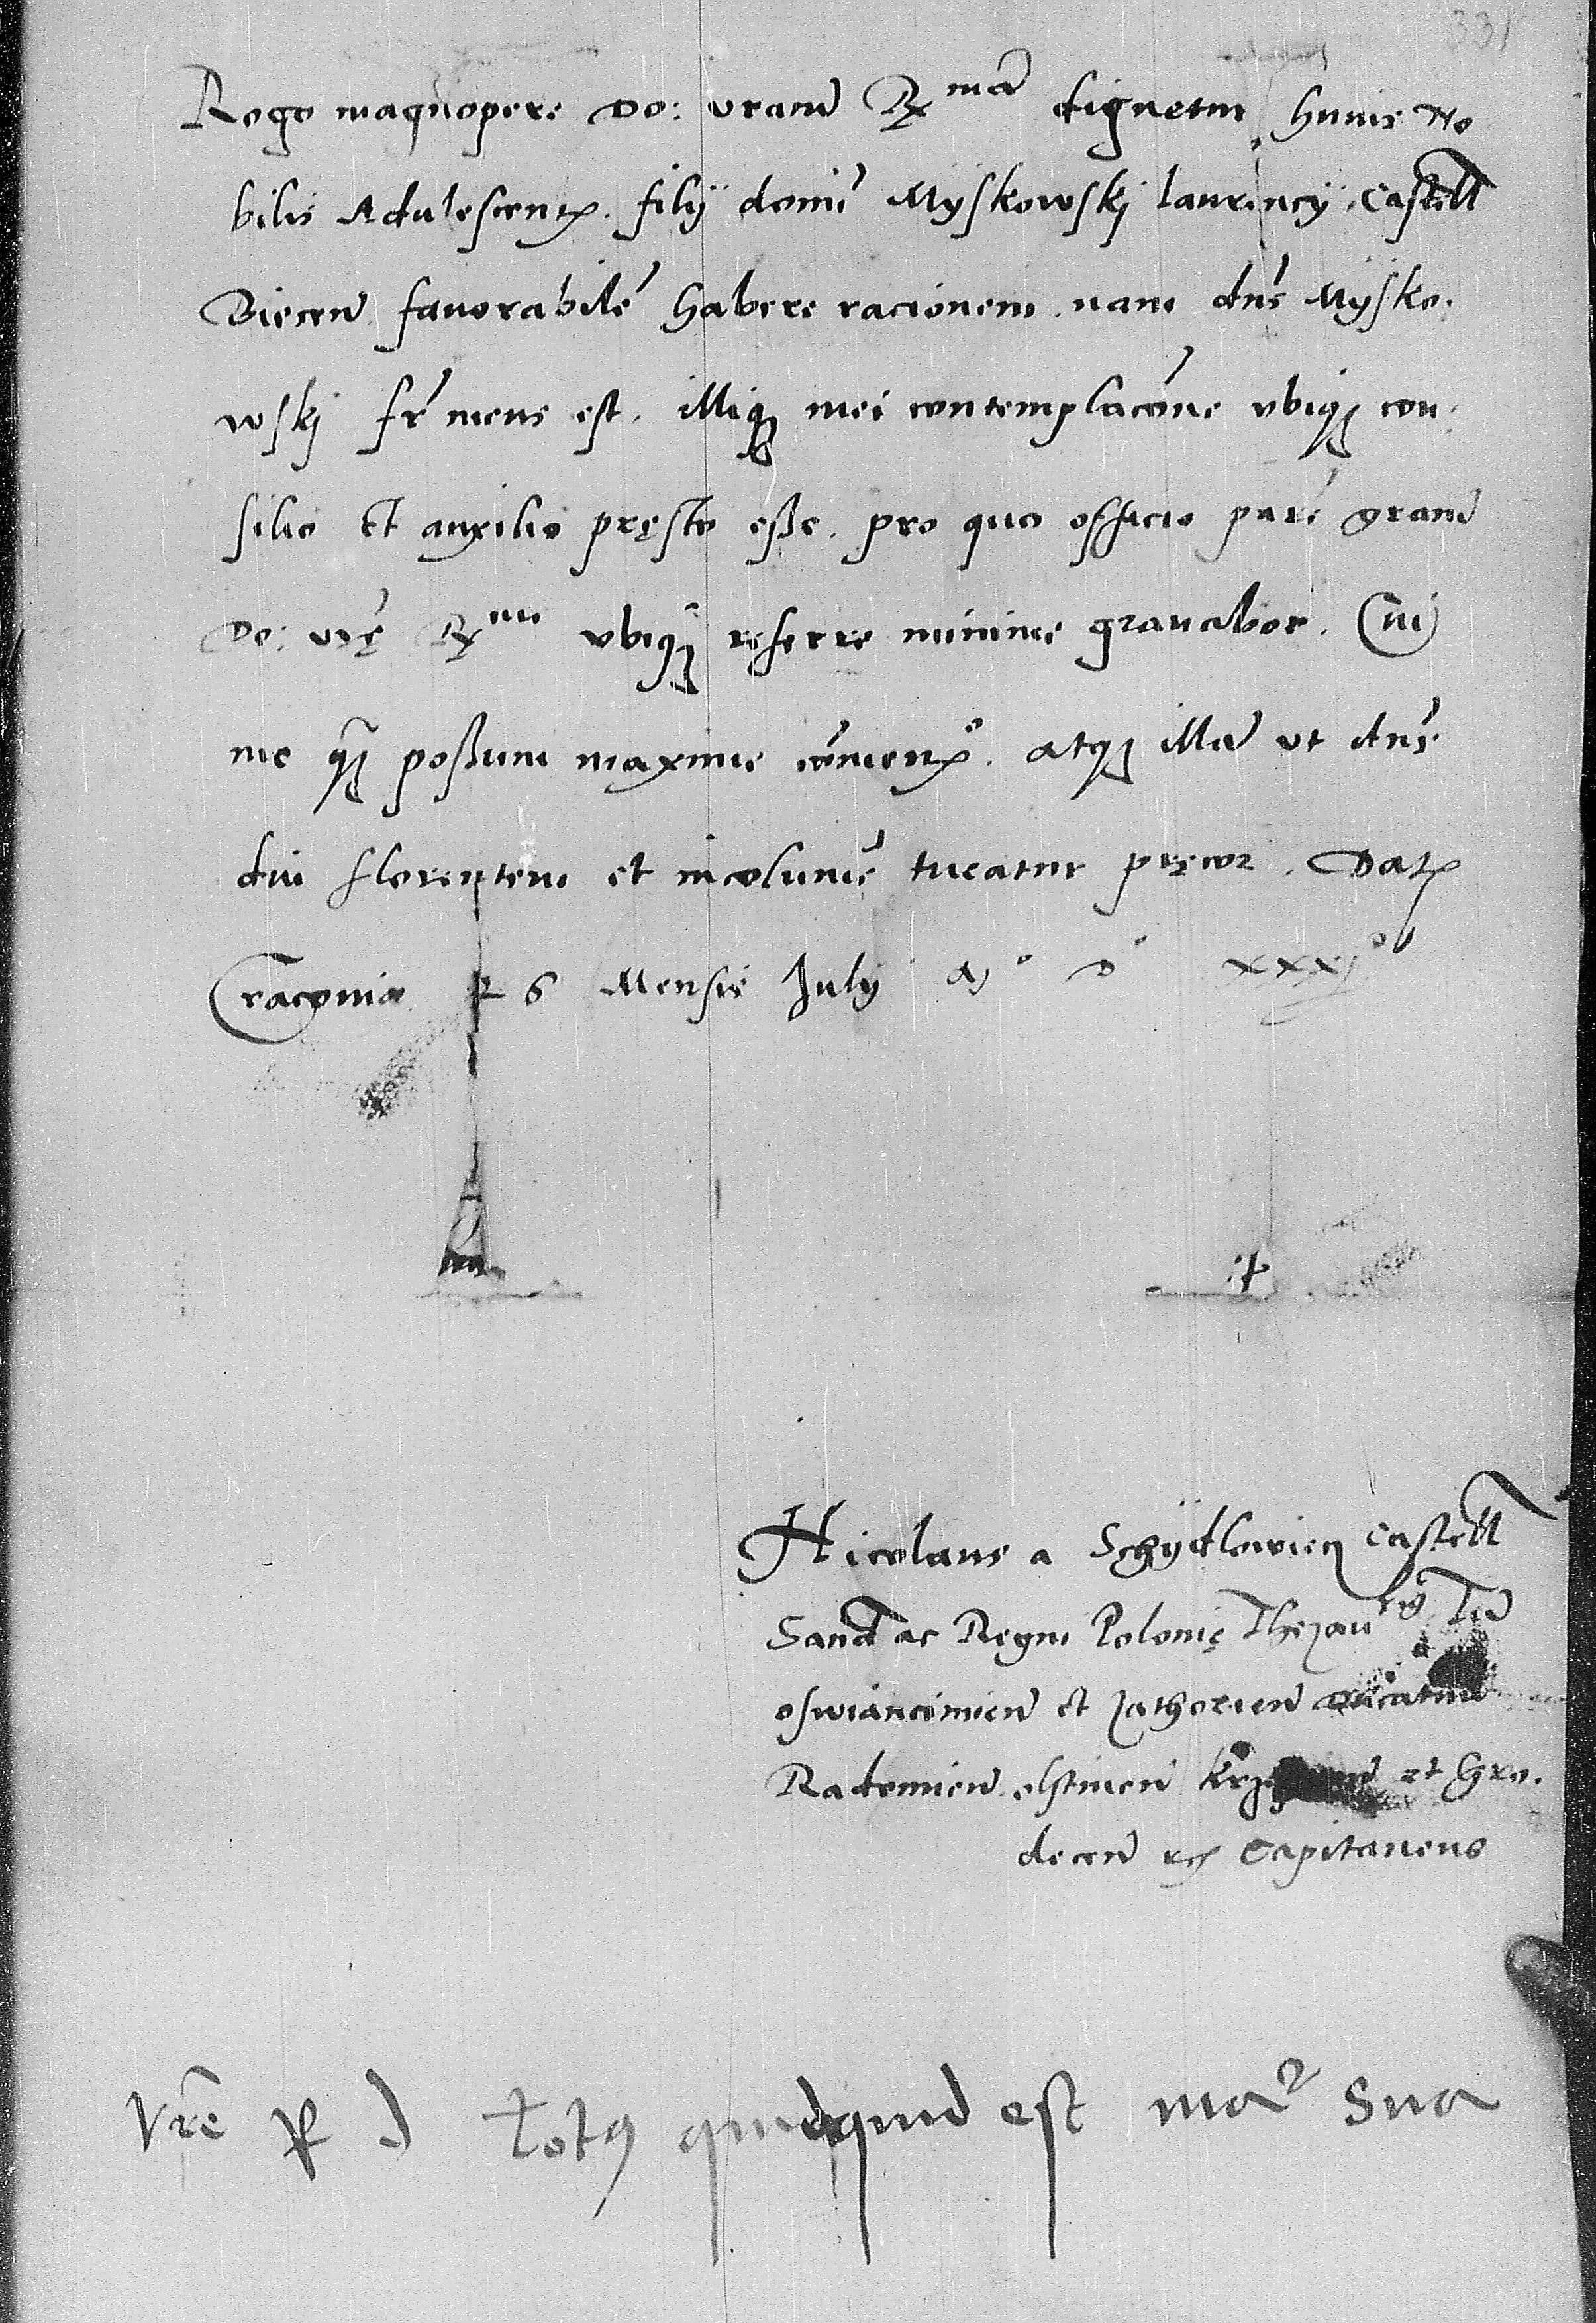 331
Rogo magnopere Do: vram̄ R^mā dignetur huius No
bilis Adulescent. filÿ domī Mÿskowskj laurencÿ Castell
Biecen̄ favorabilē habere racionem. nam dn̄s Mÿsko.
wskj fr̄ meus est. illiqꝫ mei contemplacōne vbiqꝫ con:
silio et auxilio pręsto esse. pro quo officio parē gram̄
Do: vrę R^me vbiqꝫ referre minime gravabor. Cui
me qꝫ possum maxime cōmen°. atqꝫ illam̄ vt dn̄s
diu florentem et incolumē tueatur pręcor. Dat
Cracoviæ 26 Mensis Julÿ A° D° xxxj°
Nicolaus a Schÿdlowiecz Castell
Sand ac Regni Polonię Thezaurꝰ
oswiancimien̄ et zathorien̄ ducatuū
Radomien̄ olstinen̄ et Gro.
decen̄ Capitaneus
Vr̄e P D totꝰ quidquid est ma² sua